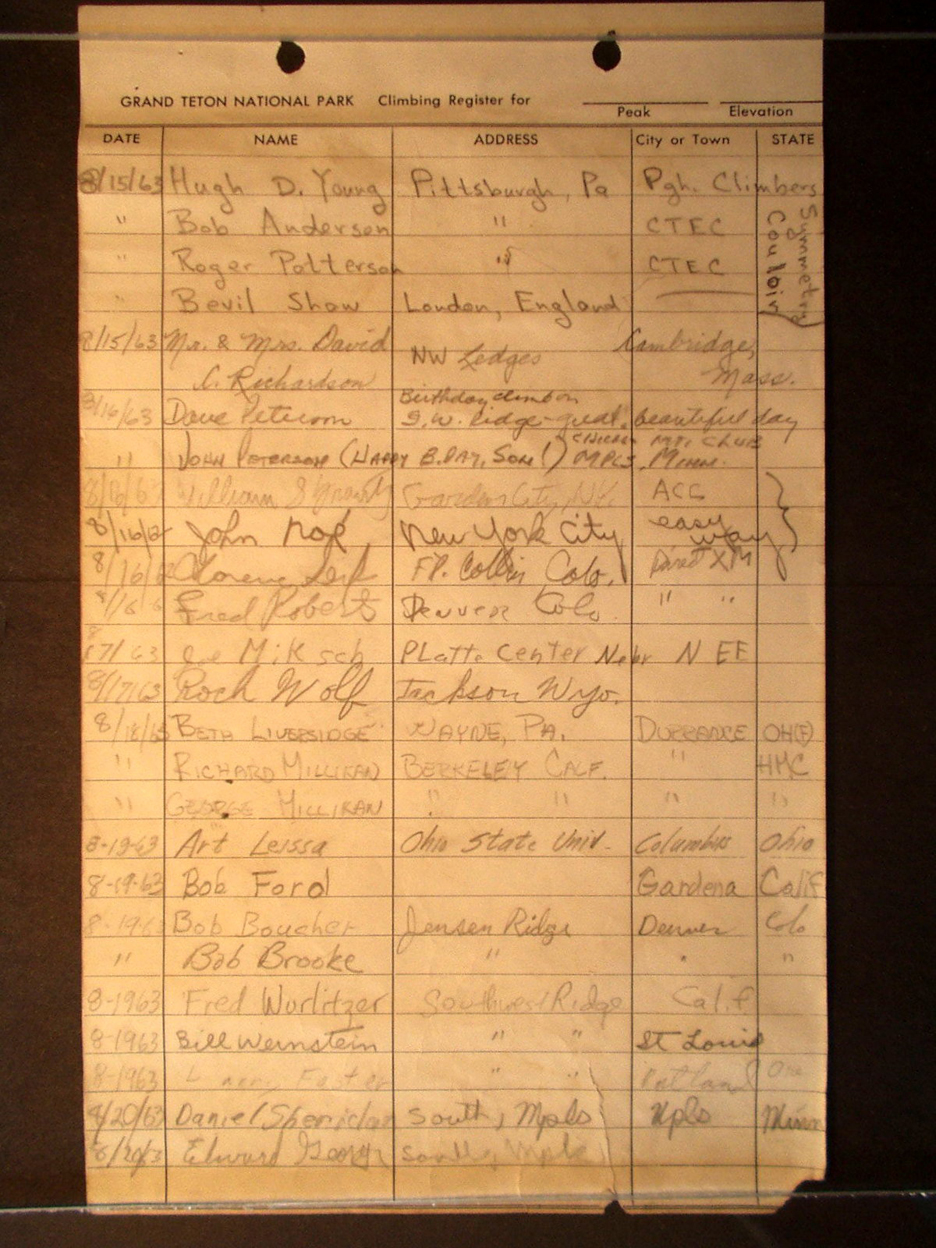 GRAND TETON NATIONAL PARK Climbing Register for
Peak Elevation
DATE NAME ADDRESS City or Town STATE
8/15/63 Hugh D. Young Pittsburgh, Pa Pgh. Climbers
" Bob Anderson " CTEC
" Roger Patterson " CTEC
" Bevil Shaw London, England
Symmetry
Couloir
8/15/63 Mr. & Mrs. David NW Ledges Cambridge,
C. Richardson Mass.
8/16/63 Dave Peterson Birthday climb on
S.W. Ridge-great. beautiful day
" John Peterson (Happy B.Day, Son!) Mpls. Minn.
Mt. Club
8/16/6 William Garden City, N.Y. ACC
8/16/6 John New York City easy
way
8/16/6 Ft. Collins Colo. Direct
/16/6 Fred Roberts Denver Colo. " "
8
17/63 Joe Miksch Platte Center Nebr N EE
8/17/63 Roch Wolf Jackson Wyo.
8/18/63 Beth Liversidge Wayne, Pa. Durrance OH(F)
" Richard Millikan Berkeley Calf. " HMC
" George Millikan " " " "
8-19-63 Art Leissa Ohio State Univ. Columbus Ohio
8-19-63 Bob Ford Gardena Calif
8-19-63 Bob Boucher Jensen Ridge Denver Colo
" Bob Brooke " " "
8-1963 Fred Wurlitzer Southwest Ridge Calif
8-1963 Bill Weinstein " " St Louis
8-1963 Foster " " Portland Ore
8/20/63 Daniel Sheridan South, Mpls Mpls Minn
8/20/3 Edward George South, Mpls